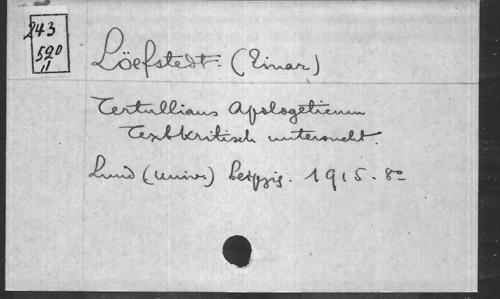 243
590
11
Löefstedt. (Einar)
Tertullians Apologeticum
Textkritisch untersucht.
Lund (Univ.) Leipzig. 1915. 8°